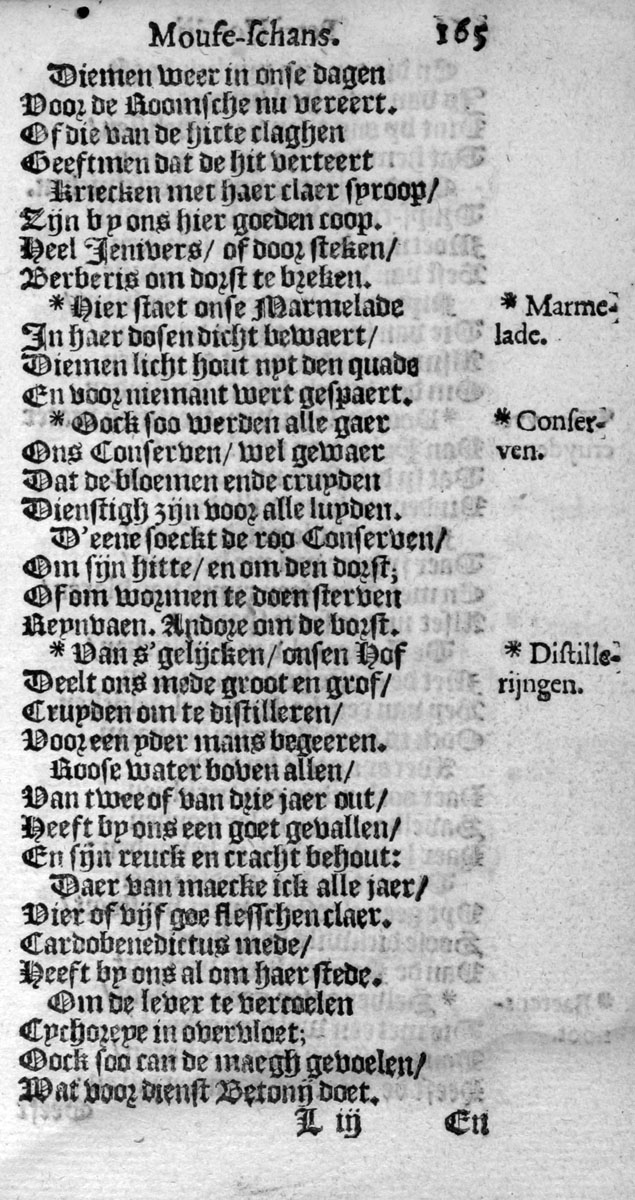 Moufe-schans. 165
Diemen weer in onse dagen
Voor de Roomsche nu vereert.
Of die van de hitte claghen
Geeftmen dat de hit verteert
Kriecken met haer claer syroop/
Zijn by ons hier goeden coop.
Heel Jenivers/ of door steken/
Berberis om dorst te breken.
* Hier staet onse Marmelade
* Marme-
In haer dosen dicht bewaert/
lade.
Diemen licht hout uyt den quade
En voor niemant wert gespaert.
* Oock soo werden alle gaer
* Conser-
Ons Conserven/ wel gewaer
ven.
Dat de bloemen ende cruyden
Dienstigh zijn voor alle luyden.
D'eene soeckt de roo Conserven/
Om sijn hitte/ en om den dorst;
Of om wormen te doen sterven
Reynvaen. Andore om de borst.
* Van s'gelijcken/ onsen Hof
* Distille-
Deelt ons mede groot en grof/
rijngen.
Cruyden om te distilleren/
Voor een yder mans begeeren.
Roose water boven allen/
Van twee of van drie jaer out/
Heeft by ons een goet gevallen/
En sijn reuck en cracht behout:
Daer van maecke ick alle jaer/
Vier of vijf goe flesschen claer.
Cardobenedictus mede/
Heeft by ons al om haer stede.
Om de lever te vercoelen
Cychoreye in overvloet;
Oock soo can de maegh gevoelen/
Wat voor dienst Betonij doet.
L iij En